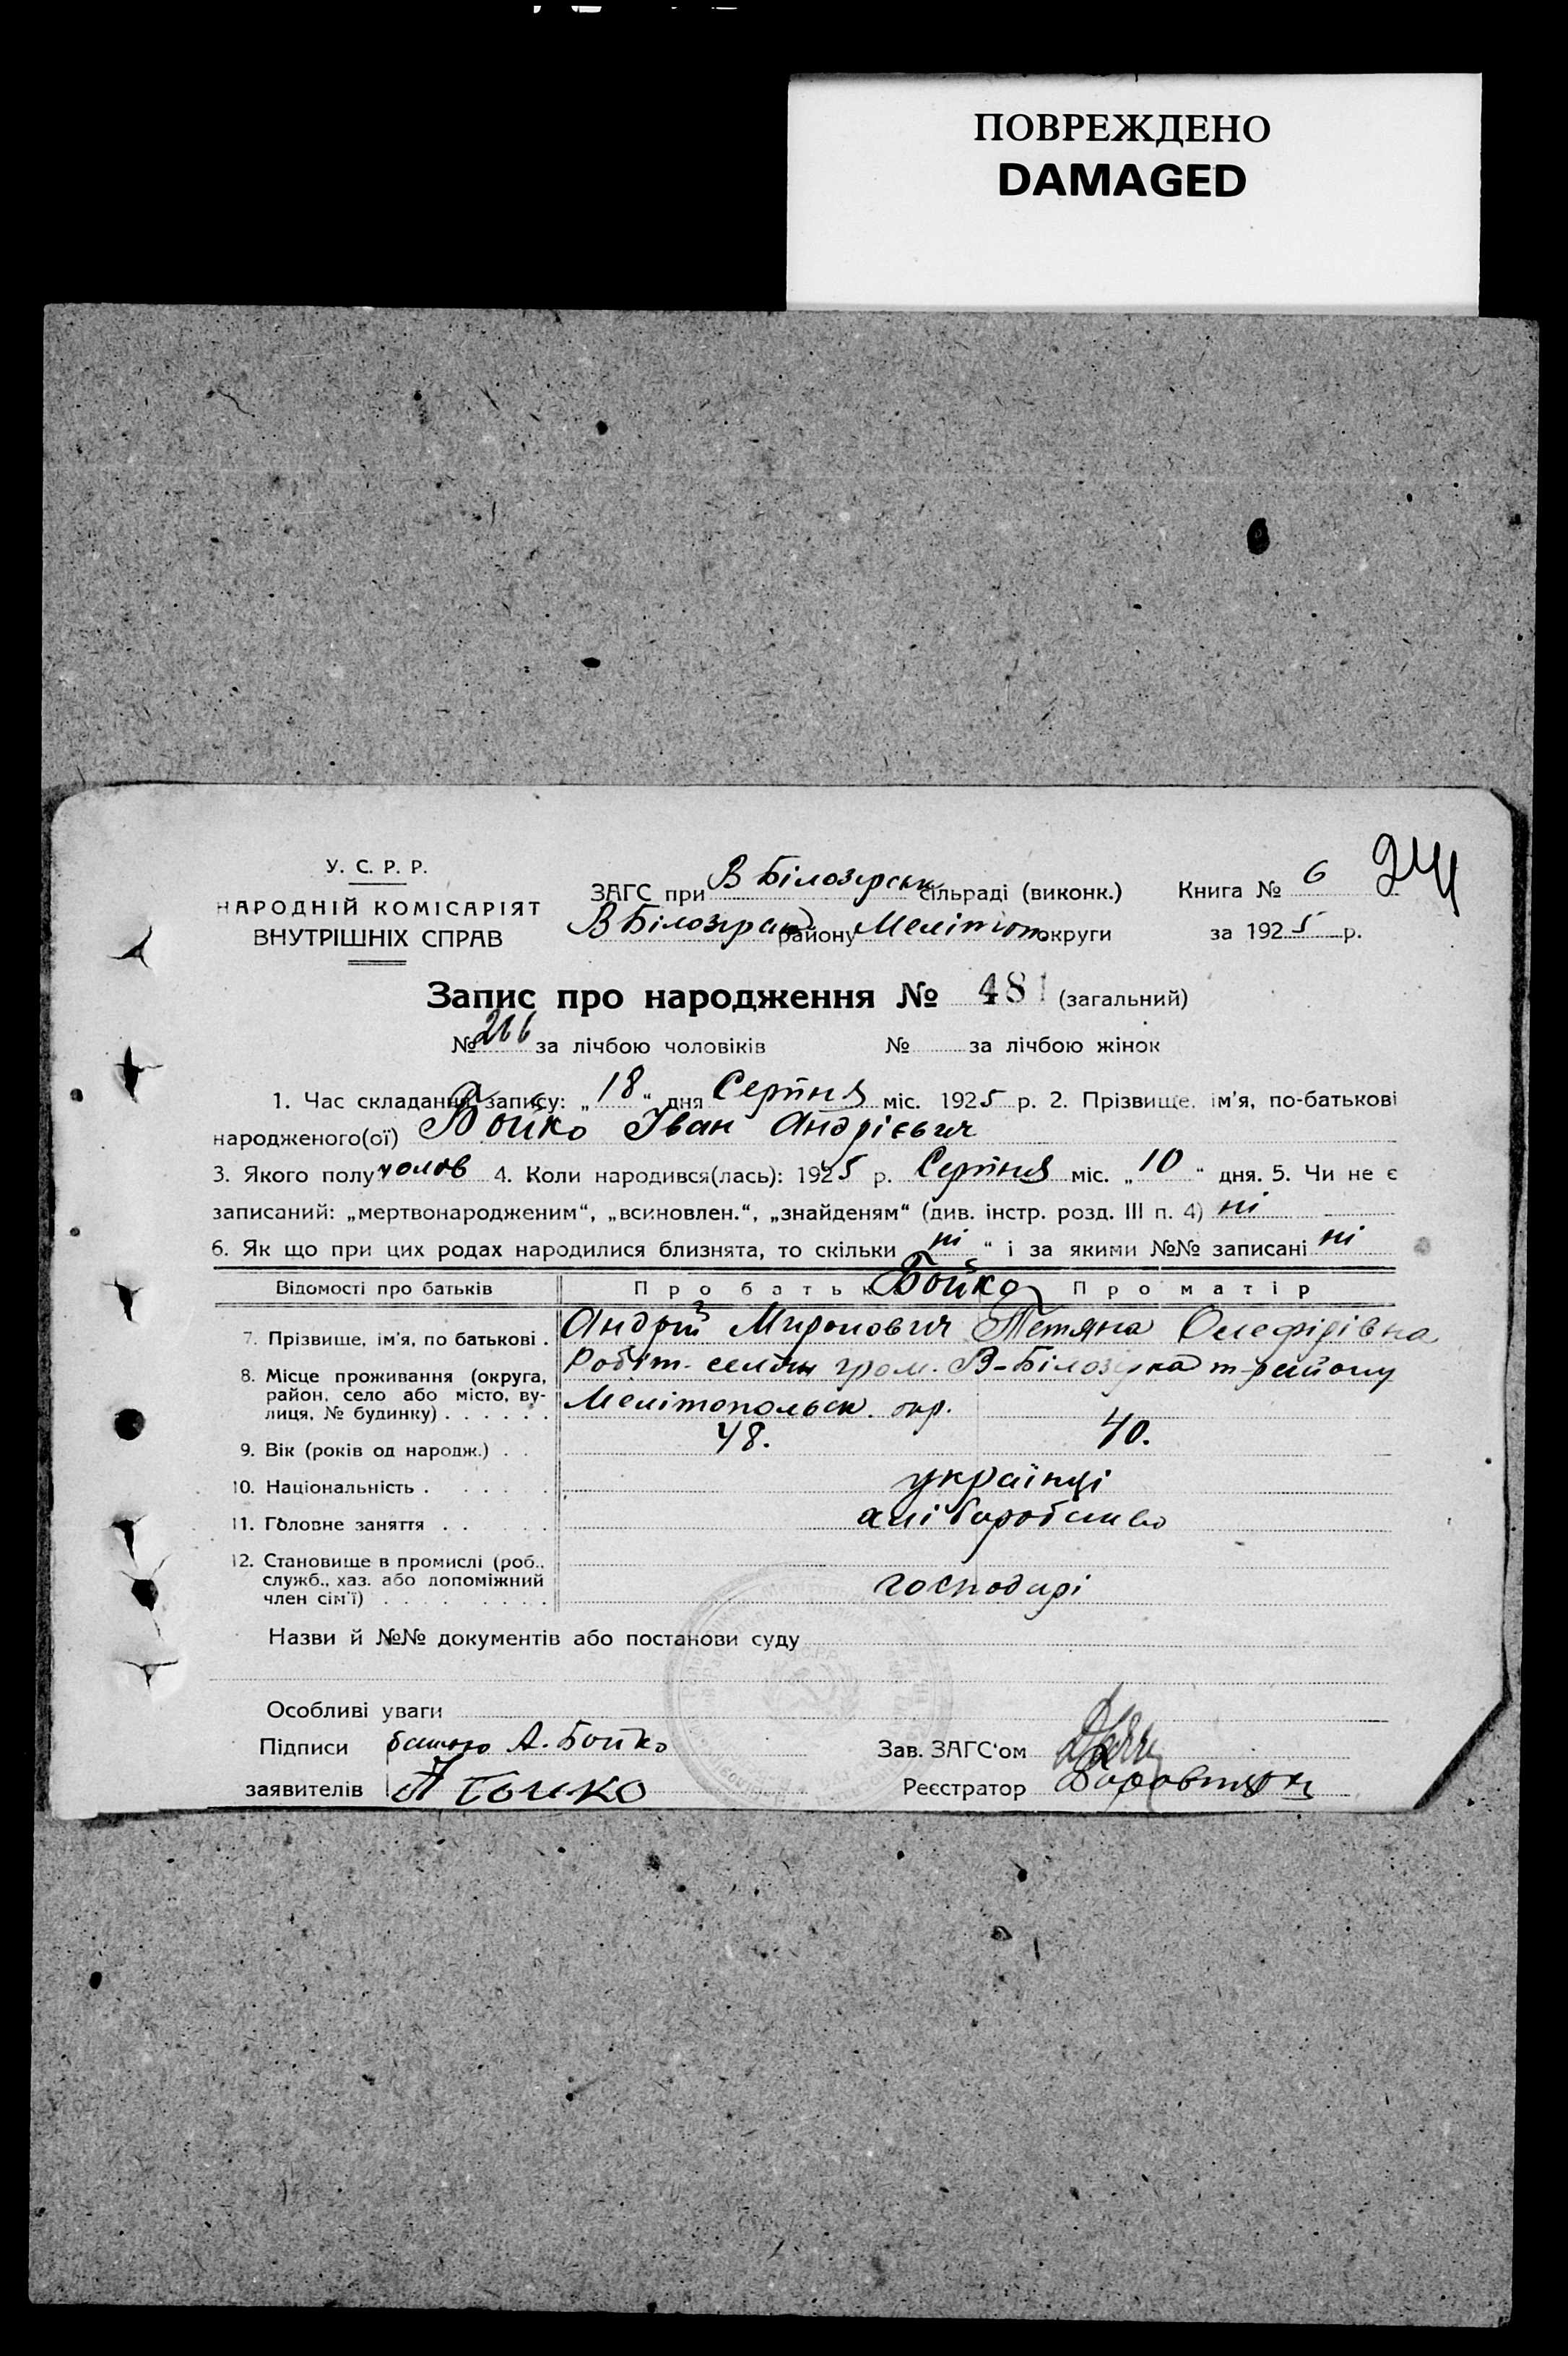 ПОВРЕЖДЕНО
DAMAGED
У. С. Р. Р.
НАРОДНІЙ КОМІСАРІЯТ
ВНУТРІШНІХ СПРАВ
ЗАГС при В Білозірськ сільраді (виконк.)
В Білозірськ району Мелітоп. округи
Книга № 6
за 1925 р.
241
Запис про народження № 481 (загальний)
№ 266 за лічбою чоловіків № за лічбою жінок
1. Час складання запису: „18“ дня Серпня міс. 1925 р. 2. Прізвище, ім'я, по-батькові
народженого(ої) Бойко Іван Андрієвич
3. Якого полу чолов 4. Коли народився(лась): 1925 р. Серпня міс. „10“ дня. 5. Чи не є
записаний: „мертвонародженим“, „всиновлен.“, „знайденям“ (див. інстр. розд. III п. 4) ні
6. Як що при цих родах народилися близнята, то скільки ні “ і за якими №№ записані ні
Відомості про батьків Про батьк Бойко Про матір
7. Прізвище, ім'я, по батькові . Андрій Миронович Тетяна Олефірівна
8. Місце проживання (округа, район, село або місто, вулиця, № будинку) . . . . . . гром. В-Білозірка т-району
Мелітопольськ. окр.
9. Вік (років од народж.) . . 48. 40.
10. Національність . . . . . українці
11. Головне заняття . . . . . хліборобство
12. Становище в промислі (роб.,
служб., хаз. або допоміжний
член сім'ї) . . . . . . . . господарі
Назви й №№ документів або постанови суду
Особливі уваги
Підписи батько А. Бойко
заявителів А Бойко
Зав. ЗАГС'ом
Реєстратор